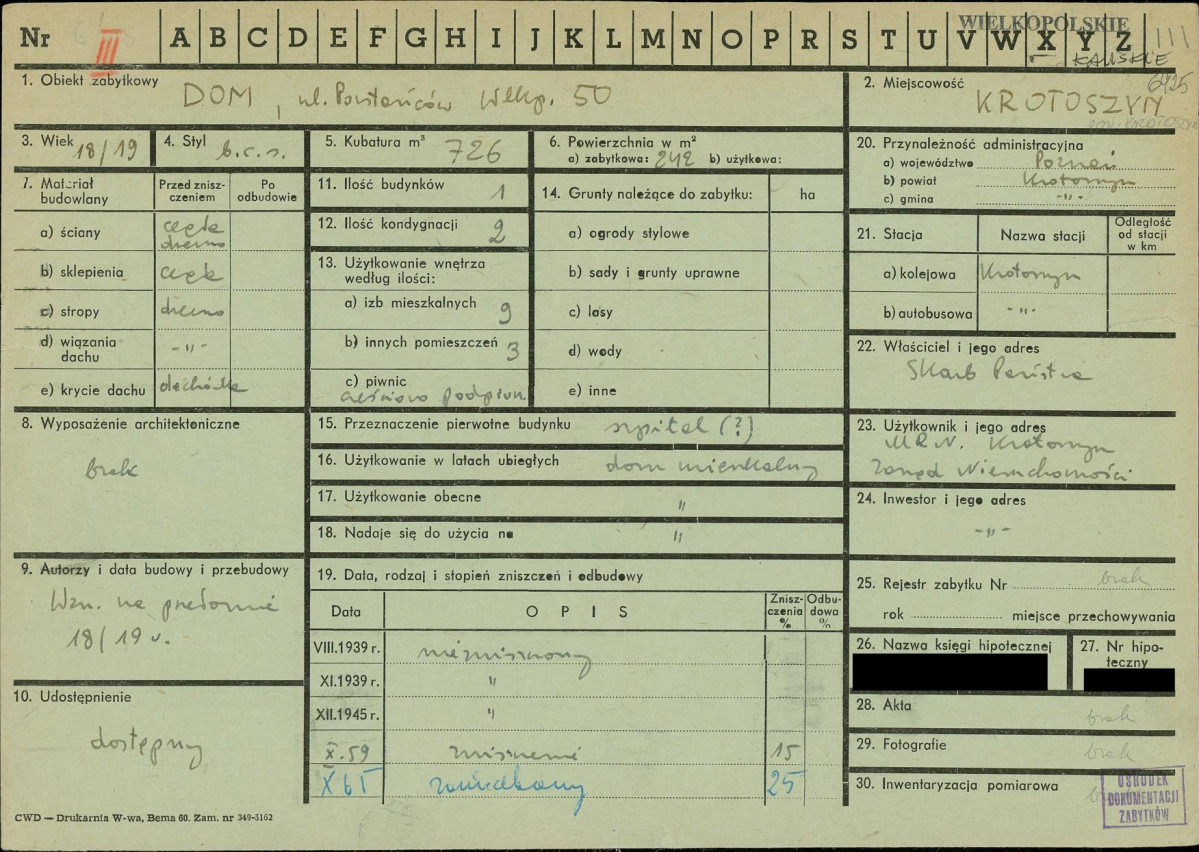 Nr III A B C D E F G H I J K L M N O P R S T U V W X Y Z
WIELKOPOLSKIE
KALISKIE
6425
1. Obiekt zabytkowy
DOM, ul. Powstańców Wlkp. 50
2. Miejscowość
KROTOSZYN
3. Wiek 18/19
4. Styl b.c.s.
5. Kubatura m³ 726
6. Powierzchnia w m²
a) zabytkowa: 242 b) użytkowa:
7. Materiał budowlany
Przed zniszczeniem
Po odbudowie
a) ściany cegła drewno
b) sklepienia cegł
c) stropy drewno
d) wiązania dachu -„-
e) krycie dachu dachówka
8. Wyposażenie architektoniczne
brak
9. Autorzy i data budowy i przebudowy
Wzn. na przełomie
18/19 w.
10. Udostępnienie
dostępny
11. Ilość budynków 1
12. Ilość kondygnacji 2
13. Użytkowanie wnętrza
według ilości:
a) izb mieszkalnych 9
b) innych pomieszczeń 3
c) piwnic
częściowo podpiwn.
14. Grunty należące do zabytku: ha
a) ogrody stylowe
b) sady i grunty uprawne
c) lasy
d) wody
e) inne
15. Przeznaczenie pierwotne budynku szpital (?)
16. Użytkowanie w latach ubiegłych dom mieszkalny
17. Użytkowanie obecne „
18. Nadaje się do użycia na „
19. Data, rodzaj i stopień zniszczeń i odbudowy
Data
OPIS
Zniszczenia %
Odbudowa %
VIII.1939 r. niezniszczony
XI.1939 r. „
XII.1945 r. „
X.59 zniszczenie 15
X 65 zaniedbany 25
20. Przynależność administracyjna
a) województwo Poznań
b) powiat Krotoszyn
c) gmina -„-
21. Stacja
Nazwa stacji
Odległość od stacji w km
a) kolejowa Krotoszyn
b) autobusowa -„-
22. Właściciel i jego adres
Skarb Państwa
23. Użytkownik i jego adres
M.R.N. Krotoszyn
Zarząd Nieruchomości
24. Inwestor i jego adres
-„-
25. Rejestr zabytku Nr brak
rok miejsce przechowywania
26. Nazwa księgi hipotecznej
27. Nr hipoteczny
28. Akta brak
29. Fotografie brak
30. Inwentaryzacja pomiarowa
OŚRODEK
DOKUMENTACJI
ZABYTKÓW
CWD — Drukarnia W-wa, Bema 60. Zam. nr 349-5162